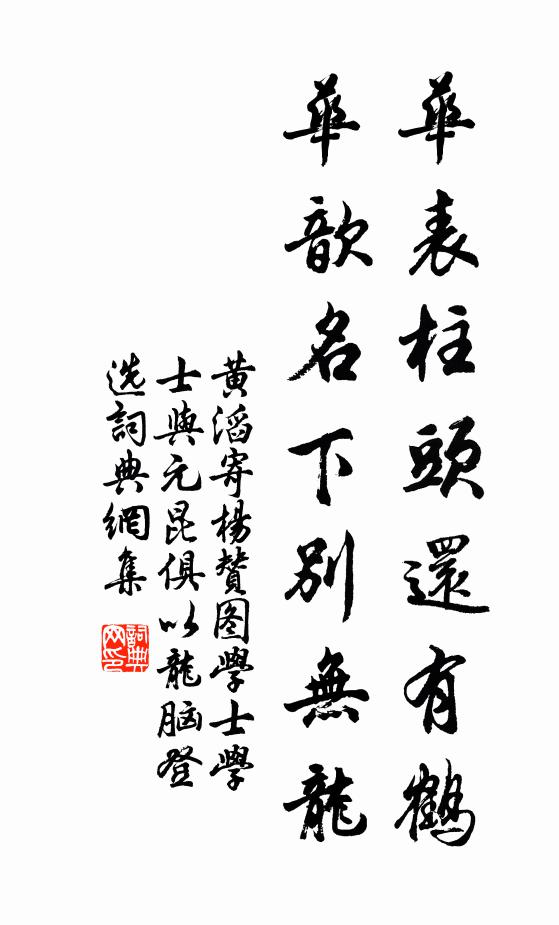 華表柱頭還有鶴
華歆名下別無龍
黃滔寄楊贊图學士學
士與元昆俱以龍脑登
选詞典網集
詞典网印